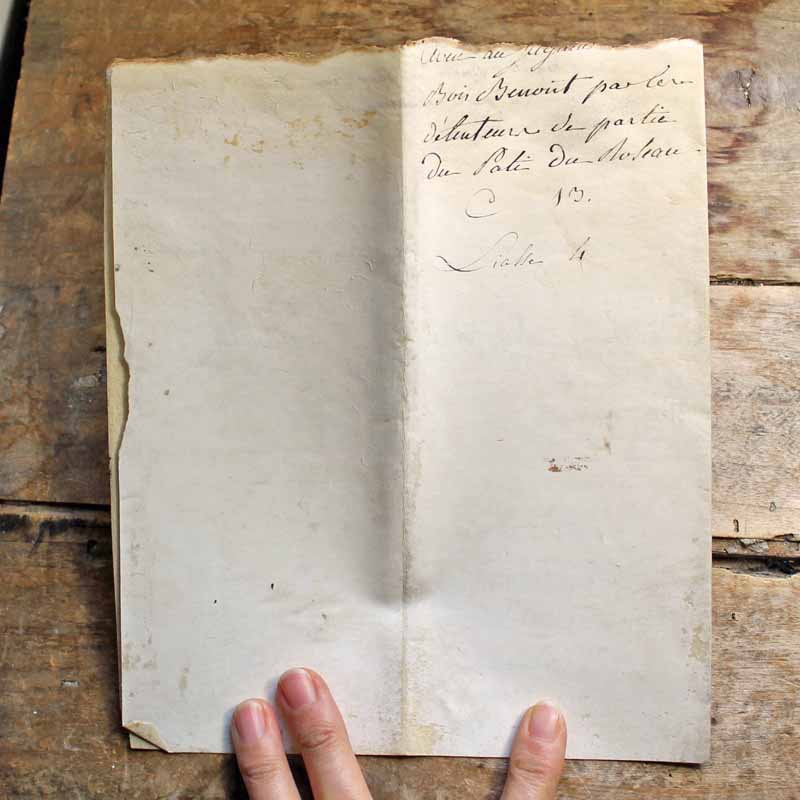 Aveu au
Bois Benoist par les
détenteurs de partie
du Pati du Roseau
C 13.
Liasse 4